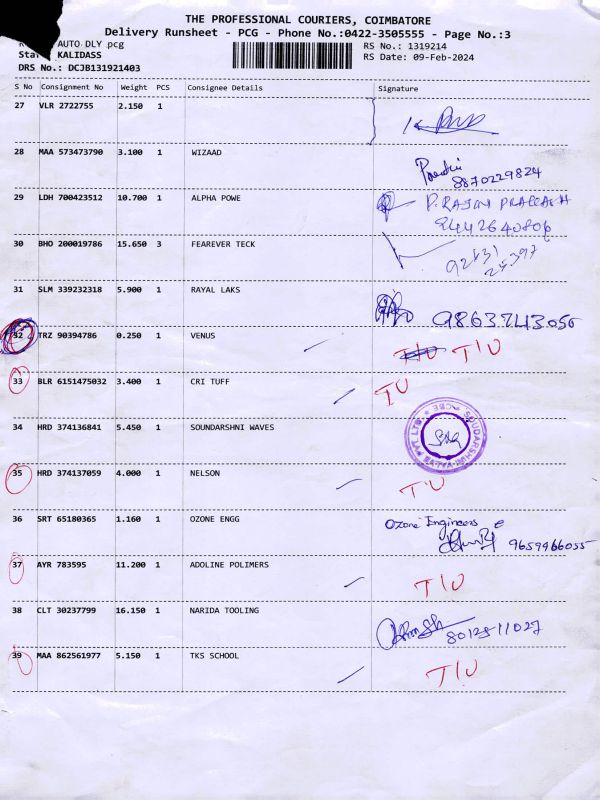 THE PROFESSIONAL COURIERS, COIMBATORE
Delivery Runsheet - PCG - Phone No.:0422-3505555 - Page No.:3
AUTO DLY pcg
RS No.: 1319214
KALIDASS
RS Date: 09-Feb-2024
DRS No.: DCJB131921403
S No Consignment No Weight PCS Consignee Details Signature
27 VLR 2722755 2.150 1
28 MAA 573473790 3.100 1 WIZAAD
8870229824
29 LDH 700423512 10.700 1 ALPHA POWE P. RAJAN PRAKASH
9442640806
30 BHO 200019786 15.650 3 FEAREVER TECK
92431
25397
31 SLM 339232318 5.900 1 RAYAL LAKS
9863743056
32 TRZ 90394786 0.250 1 VENUS
T/U T/U
33 BLR 6151475032 3.400 1 CRI TUFF TU
34 HRD 374136841 5.450 1 SOUNDARSHNI WAVES
35 HRD 374137059 4.000 1 NELSON
T/U
36 SRT 65180365 1.160 1 OZONE ENGG Ozone Engineers
9659966055
37 AYR 783595 11.200 1 ADOLINE POLIMERS
T/U
38 CLT 30237799 16.150 1 NARIDA TOOLING
8012511027
39 MAA 862561977 5.150 1 TKS SCHOOL
T/U